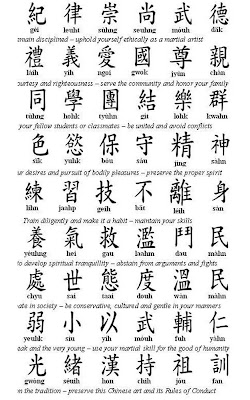 紀律崇尚武德
géi leuht sùhng seuhng móuh dāk
main disciplined – uphold yourself ethically as a martial artist
禮義愛國尊親
láih yih ngoi gwok jyūn chān
ourtesy and righteousness – serve the community and honor your family
同學團結樂群
tùhng hohk tyùhn git lohk kwàhn
your fellow students or classmates – be united and avoid conflicts
色慾保守精神
sīk yuhk bóu sáu jīng sàhn
ur desires and pursuit of bodily pleasures – preserve the proper spirit
練習技不離身
lihn jaahp geih bāt lèih sān
Train diligently and make it a habit – maintain your skills
養氣救濫鬥民
yéuhng hei gau laahm dau màhn
to develop spiritual tranquility – abstain from arguments and fights
處世態度溫民
chyu sai taai douh wān màhn
ate in society – be conservative, cultured and gentle in your manners
弱小以武輔仁
yeuhk síu yíh móuh fuh yàhn
eak and the very young – use your martial skill for the good of humanity
光緒漢持祖訓
gwōng séuih hon chìh jóu fan
n the tradition – preserve this Chinese art and its Rules of Conduct